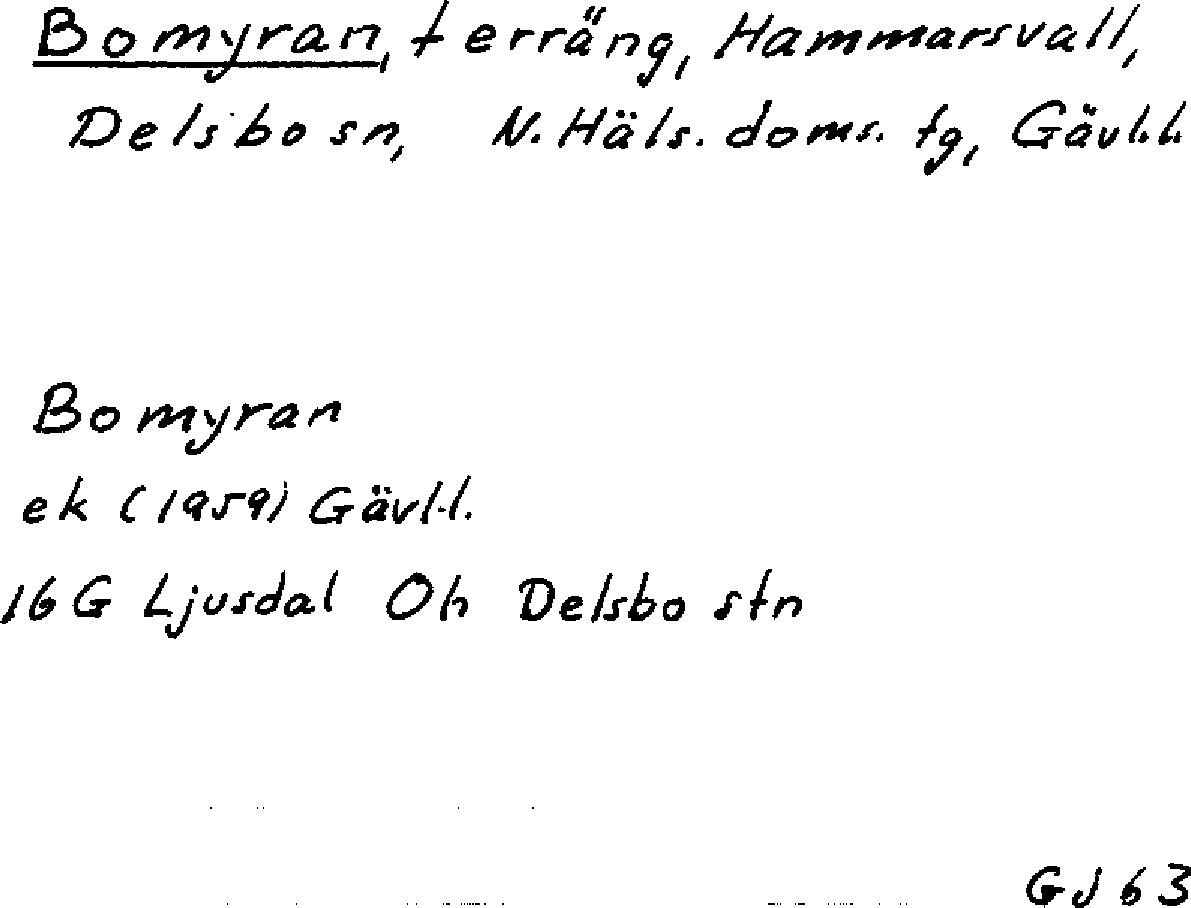 Bomyran, terräng, Hammarsvall,
Delsbo sn, N. Häls. doms. tg, Gävl.l.
Bomyran
ek (1959) Gävl.l.
16G Ljusdal Oh Delsbo stn
GJ 63